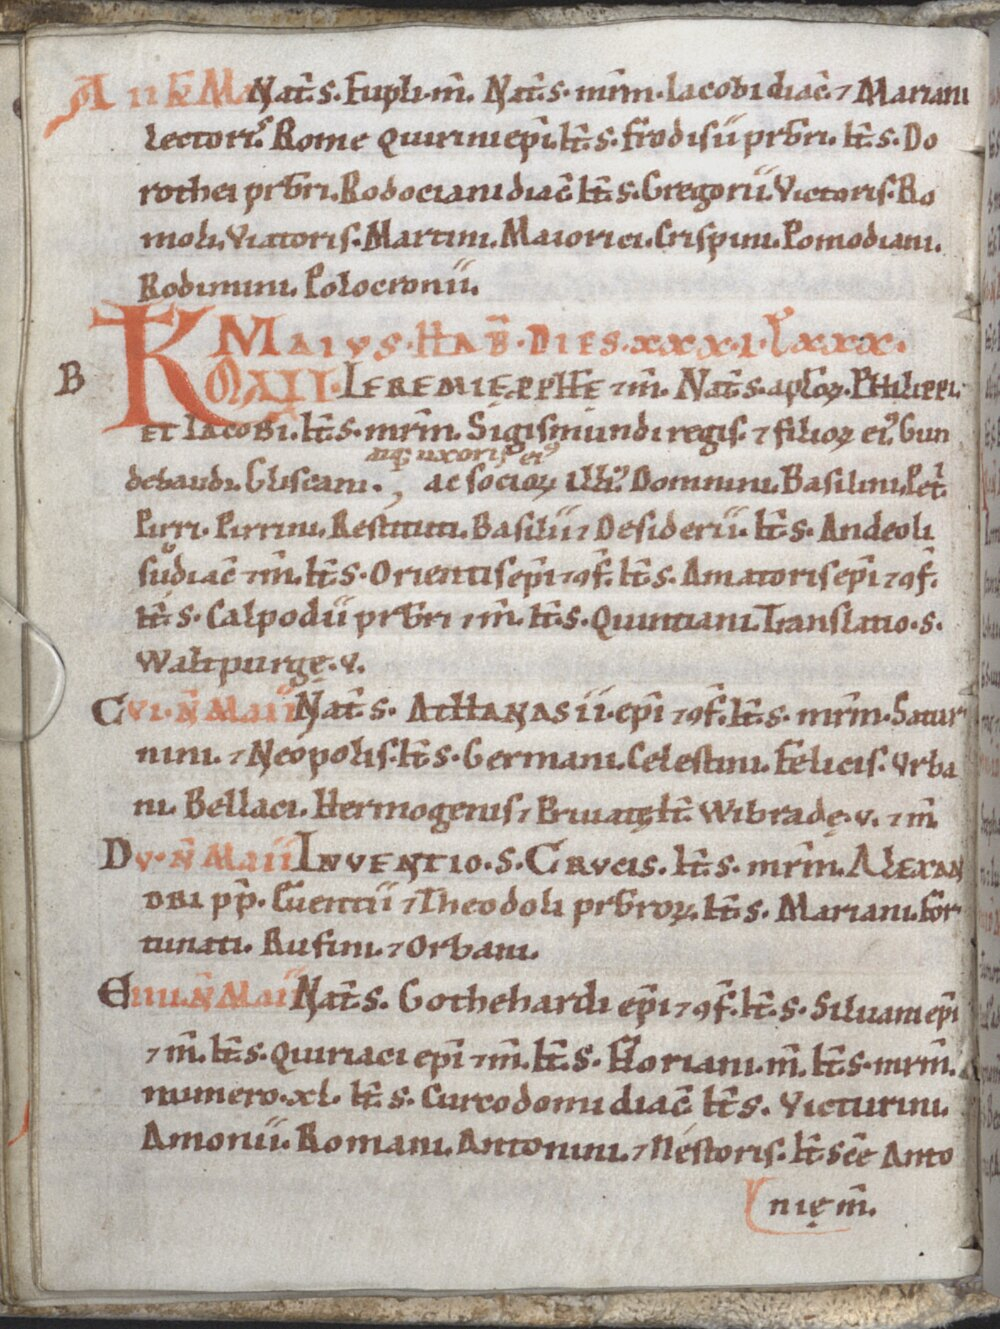 A II K̄ MA Nat̄. s. Eupli. m̄. Nat̄. s. mr̄m. Iacobi diac̄. ⁊ Mariani
Lectoris. Rome Quirini ep̄i. It̄. s. Erodisii pr̄bri. It̄. s. Do
rothei pr̄bri. Rodociani diac̄. It̄. s. Gregorii. Victoris. Ro
moli. Viatoris. Martini. Maiorici. Crispini. Pomodiani.
Rodinini. Polocronii.
K MAIVS. HAB̄. DIES. XXXI. L̄. XXX.
B KL MAII. IEREMIĘ PPHE ⁊ m̄. Nat̄. s. aploꝝ. PHILIPPI.
ET IACOBI. It̄. s. mr̄m. Sigismundi regis. ⁊ filioꝝ ei⁹. Gun
atq; uxoris ei⁹
debaudi. Gliscani., ac socioꝝ illi⁹. Domnini. Basilini. Pet̄.
Pirri. Pirrini. Restituti. Basilii ⁊ Desiderii. It̄. s. Andeoli
subdiac̄ ⁊ m̄. It̄. s. Orientis ep̄i ⁊ ꝯf. It̄. s. Amatoris ep̄i ⁊ ꝯf.
It̄. s. Calpodii pr̄bri ⁊ m̄. It̄. s. Quintiani. Translatio. s.
Waltpurgę. v.
C VI. N̄ MAII Nat̄. s. ATHANASII. ep̄i ⁊ ꝯf. It̄. s. mr̄m. Satur
nini. ⁊ Neopolis. It̄. s. Germani. Celestini. Felicis. Vrba
ni. Bellaci. Hermogenis ⁊ Priuatę. It̄. Wibradę. v. ⁊ m̄.
D V. N̄ MAII INVENTIO. S. CRVCIS. It̄. s. mr̄m. ALEXAN
DRI pp̄. Euentii ⁊ Theodoli pr̄broꝝ. It̄. s. Mariani. For
tunati. Rufini. ⁊ Orbani.
E IIII. N̄ MAII Nat̄. s. Gothehardi ep̄i ⁊ ꝯf. It̄. s. Siluani ep̄i
⁊ m̄. It̄. s. Quiriaci ep̄i ⁊ m̄. It̄. s. Floriani. m̄. It̄. s. mr̄m.
numero. xl. It̄. s. Curcodomi diac̄. It̄. s. Victurini.
Amonii. Romani. Antonini. ⁊ Nestoris. It̄. sc̄e Anto
nię m̄.